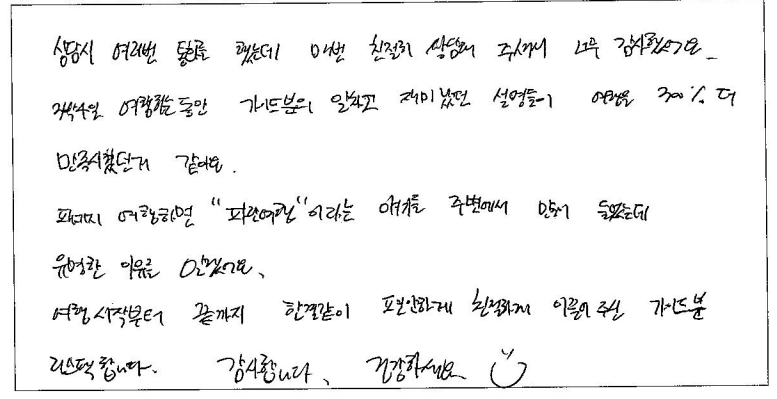 상담시 여러번 통화를 했는데 매번 친절히 상담해 주셔서 너무 감사했어요.
3박4일 여행하는동안 가이드분의 알차고 재미있었던 설명들이 여행을 300% 더
만족시켰던거 같아요.
패키지 여행하면 "파란여행"이라는 얘기를 주변에서 많이 들었는데
유명한 이유를 알겠어요.
여행 시작부터 끝까지 한결같이 편안하게 친절하게 이끌어 주신 가이드분
리스펙 합니다. 감사합니다. 건강하세요